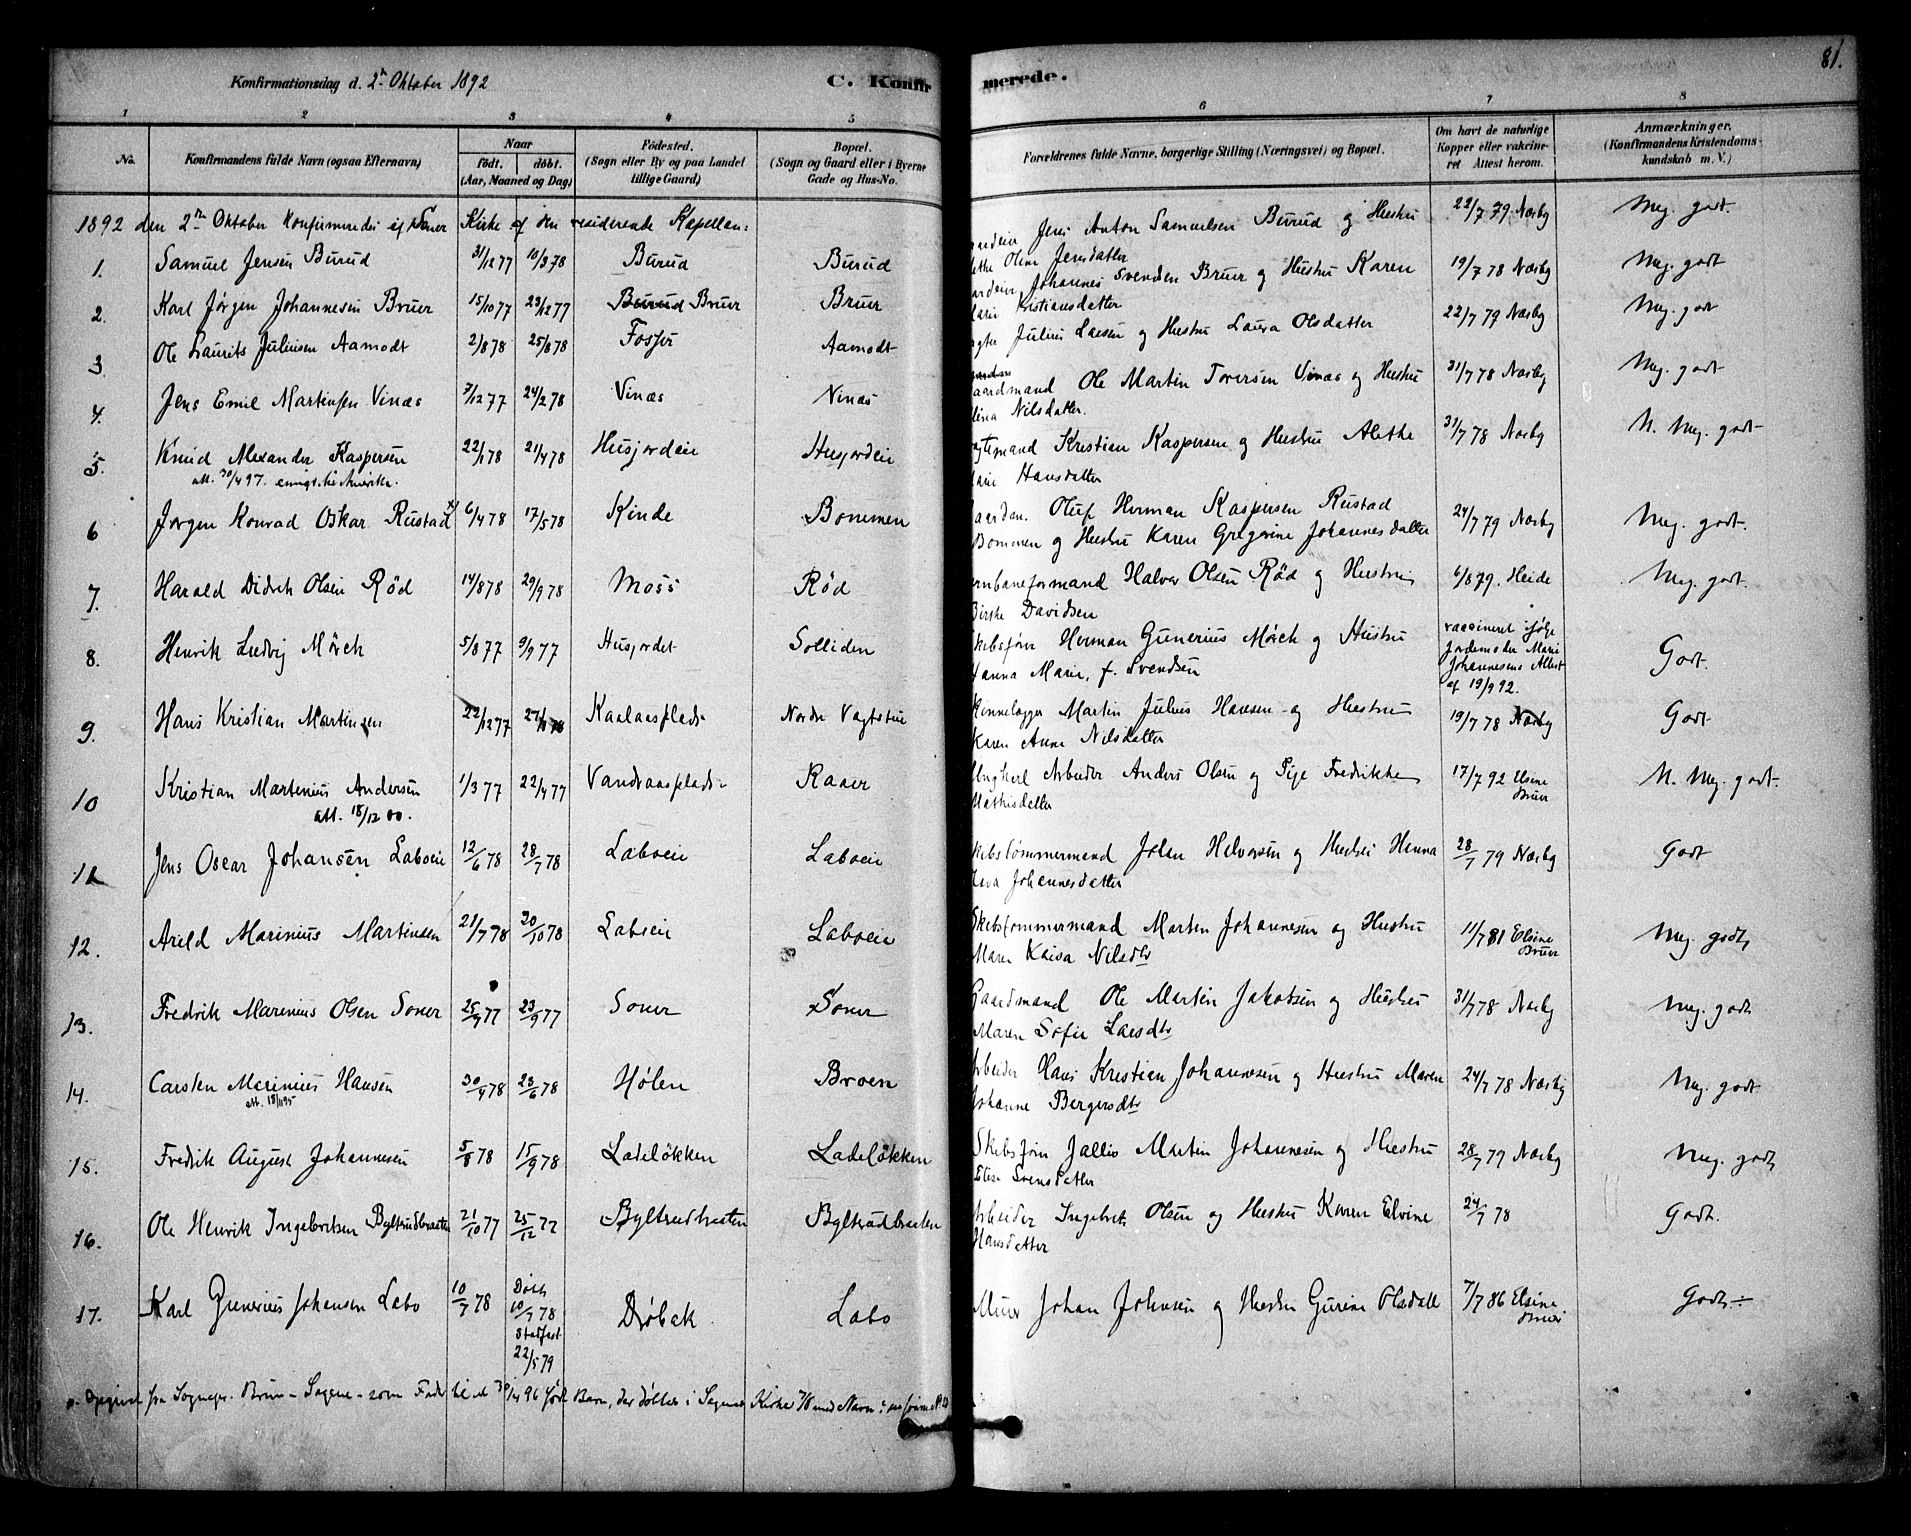 81.
Konfirmationsdag d. 2n Oktober 1892
C. Konfir
merede.
1 2 3 4 5 6 7 8
No.
Konfirmandens fulde Navn (ogsaa Efternavn)
Naar
født. døbt.
(Aar, Maaned og Dag)
Fødested.
(Sogn eller By og paa Landet
tillige Gaard)
Bopæl.
(Sogn og Gaard eller i Byerne
Gade og Hus-No.
Forældrenes fulde Navne, borgerlige Stilling (Næringsvei) og Bopæl.
Om havt de naturlige
Kopper eller vakcine-
ret Attest herom.
Anmærkninger.
(Konfirmandens Kristendoms-
kundskab m. V.)
1892 den 2n Oktober Konfirmeredes i Soner Kirke af den residerende Kapellan:
1. Samuel Jensen Burud 31/12 77 10/3 78 Burud Burud
Jens Anton Samuelsen Burud og Hustru
Oline Jensdatter
22/7 79 Næsby Meg. godt.
2. Karl Jørgen Johannesen Bruer 15/10 77 23/12 77 Burud Bruer Bruer
Johannes Svendsen Bruer og Hustru Karen
Kristiansdatter
19/7 78 Næsby Meg. godt
3. Ole Laurits Juliusen Aamodt 2/8 78 25/8 78 Fosser Aamodt
Julius Larsen og Hustru Laura Olsdatter
22/7 79 Næsby Meg. godt
4. Jens Emil Martinsen Vinæs 7/12 77 24/2 78 Vinæs Vinæs
aardmand Ole Martin Torersen Vinæs og Hustru
Nilsdatter.
31/7 78 Næsby Meg. godt
5. Knud Alexander Kaspersen 22/1 78 21/4 78 Husjordeie Husjordeie
att. 30/4 97. emigr. til Amerika.
Kristian Kaspersen og Hustru Alethe
Hansdatter
31/7 78 Næsby N. Meg. godt
6 Jørgen Konrad Oskar Rustad x) 6/4 78 17/5 78 Kinde Bommen
Oluf Herman Kaspersen Rustad
Bommen og Hustru Karen Gregorine Johannesdatter
24/7 79 Næsby Meg. godt.
7. Harald Didrik Olsen Rød 14/8 78 29/9 78 Moss Rød
rnbaneformand Halvor Olsen Rød og Hustru
Birthe Davidsen
6/8 79. Heide Meg. godt.
8. Henrik Ludvig Mörch 5/8 77 9/9 77 Husjordet Solliden
kibsfører Herman Gunerius Mörch og Hustru
Hanna Marie, f. Svendsen
vaccineret ifølge
Jordemoder Marie
Johannesens Attest
af 19/9 92.
Godt.
9. Hans Kristian Martinsen 22/12 77 27/1 78 Kaalaasplads Nordre Vagtstue
Martin Julius Hansen og Hustru
Karen Anne Nilsdatter
19/7 78 Næsby Godt
10 Kristian Martinius Andersen 1/3 77 22/4 77 Vandaasplads Raaer
att. 18/12 00.
Ungkarl Arbeider Anders Olsen og Pige Fredrikke
Mathisdatter
17/7 92 Elsine
Bruer
N. Meg. godt.
11 Jens Oscar Johansen Laboeie 12/6 78 28/7 78 Laboeie Laboeie
kibstømmermand Johan Halvorsen og Hustru Hanna
Johannesdatter
28/7 79 Næsby Godt
12. Arild Marinius Martinsen 21/7 78 20/10 78 Laboeie Laboeie
Skibstømmermand Martin Johannesen og Hustru
Maren Kaisa Nilsdtr
11/7 81 Elsine
Bruer
Meg. godt,
13. Fredrik Marinius Olsen Soner 25/9 77 23/9 77 Soner Soner
Gaardmand Ole Martin Jakobsen og Hustru
Maren Sofie Larsdtr
31/7 78 Næsby Meg. godt
14. Carsten Marinius Hansen 30/4 78 23/6 78 Hølen Broen
att. 18/1 95
Arbeider Hans Kristian Johannesen og Hustru Maren
Johanne Bergersdtr
24/7 78 Næsby Meg. godt
15. Fredrik August Johannesen 5/8 78 15/9 78 Ladeløkken Ladeløkken
Skibsfører Martin Johannesen og Hustru
Elise Svensdatter
28/7 79 Næsby Meg. godt
16. Ole Henrik Ingebretsen Byltrudbraaten 21/10 77 25/12 77 Byltrudbraaten Byltrudbraaten
Arbeider Ingebret Olsen og Hustru Karen Elvine
Hansdatter
24/7 78 Godt.
17. Karl Gunerius Johansen Labo 10/7 78 Døbt
10/7 78
Stadfæst
22/5 79
Drøbak Labo
Murer Johan Johnsen og Hustru Gurine Olsdatt
7/7 86 Elsine
Bruer
Godt ÷
x. Opgivet fra Sognepr. Bruun - Sagene - som Fader til et født Barn, der døbtes i Sagenes Kirke med Navn